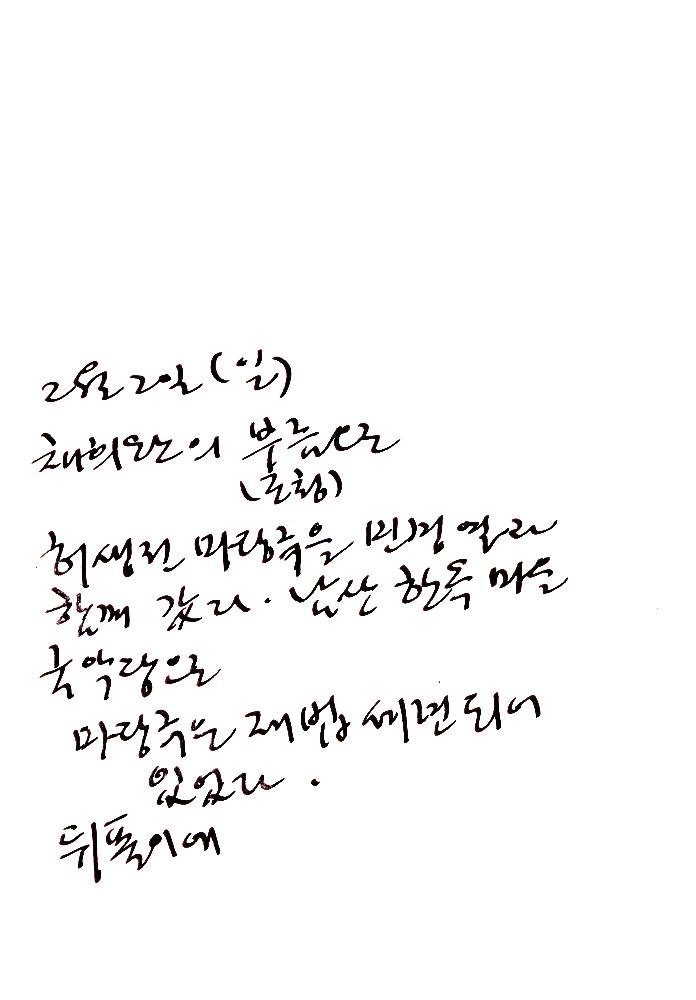 2월 2일 (일)
채희완의 부름으로
(초청)
허생전 마당극을 민경 열라
함께 갔다. 남산 한옥 마을
국악당으로
마당극은 재법 세련되어
있었다.
뒤풀이에